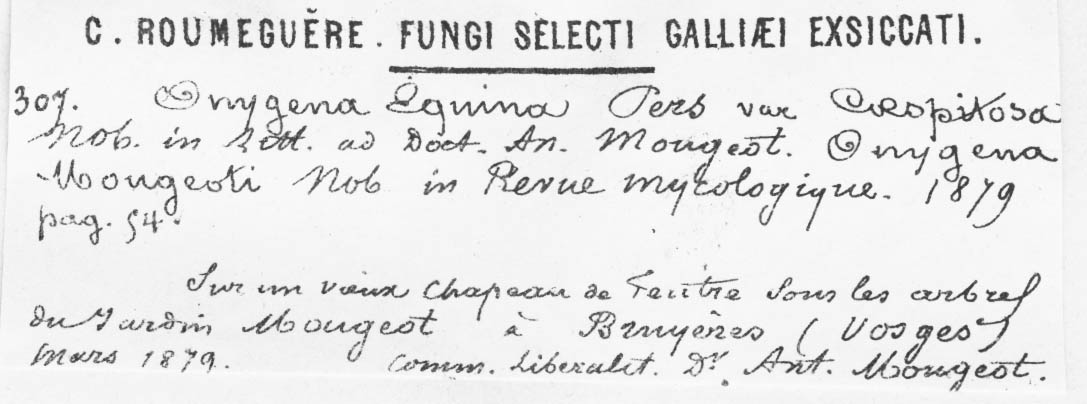 C. ROUMEGUĔRE. FUNGI SELECTI GALLIÆI EXSICCATI.
307. Onygena Equina Pers var Cœspitosa
Nob. in Litt. ad Doct. An. Mougeot. Onygena
Mougeoti Nob in Revue mycologique. 1879
pag. 54.
Sur un vieux Chapeau de Feutre sous les arbres
du Jardin Mougeot à Bruyères (Vosges)
Mars 1879. Comm. Liberalit. Dr. Ant. Mougeot.